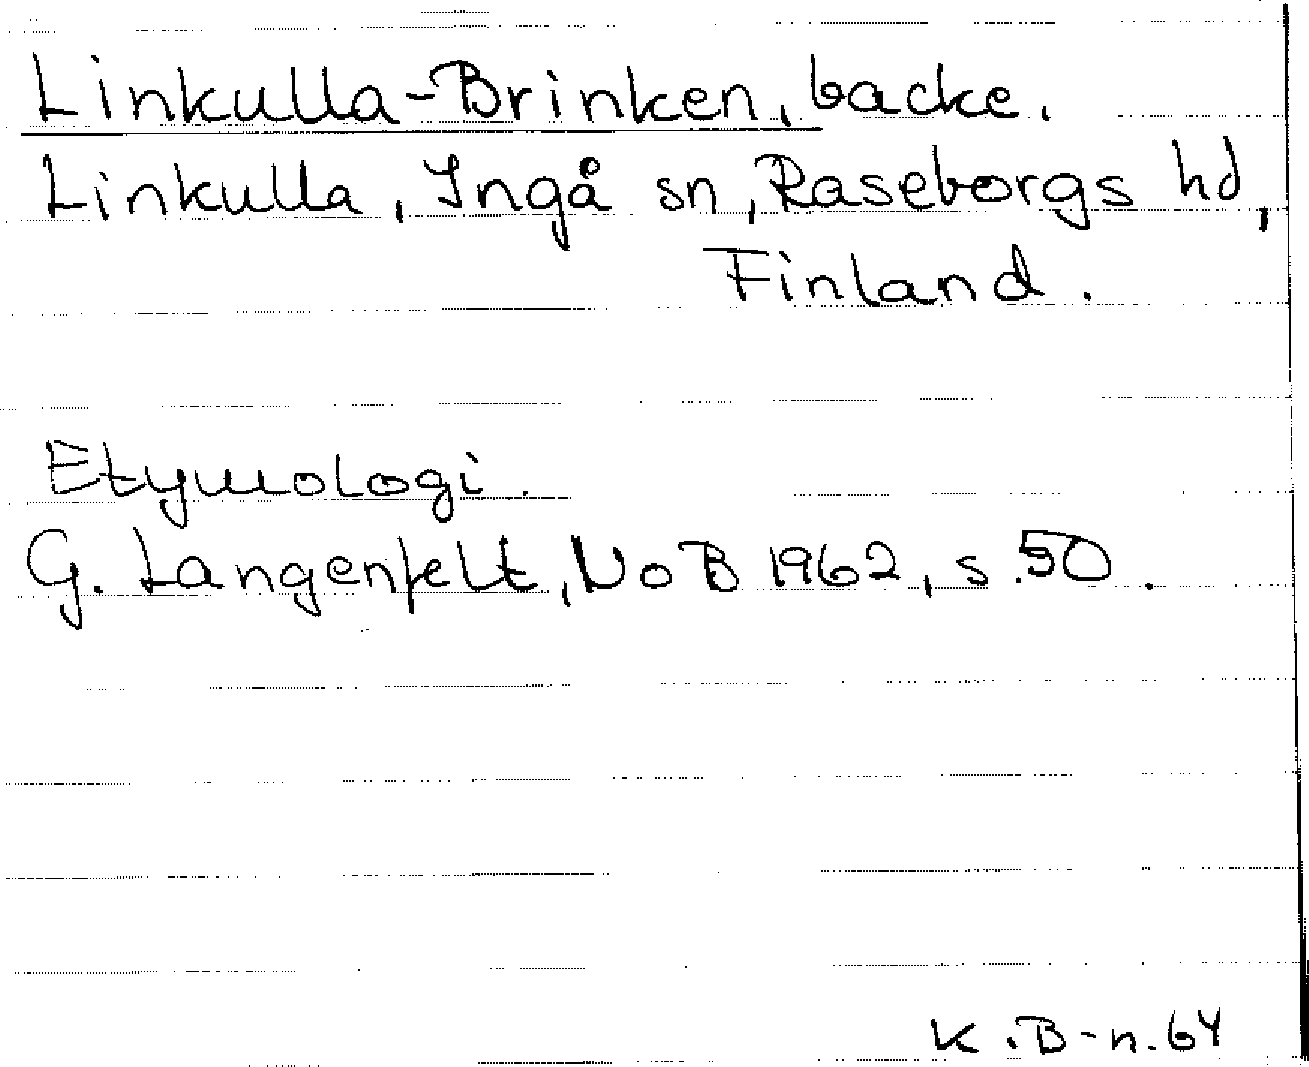 Linkulla-Brinken, backe.
Linkulla, Ingå sn, Raseborgs hd,
Finland.
Etymologi.
G. Langenfelt, NoB 1962, s. 50.
K.B-n. 64